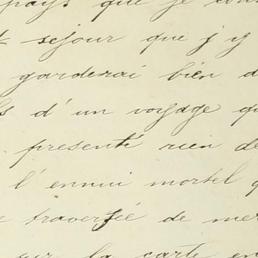 pays que je con
séjour que j'y
garderai bien d
s d'un voyage qu
présenté rien de
l'ennui mortel q
e traversée de mer
sur la carte en